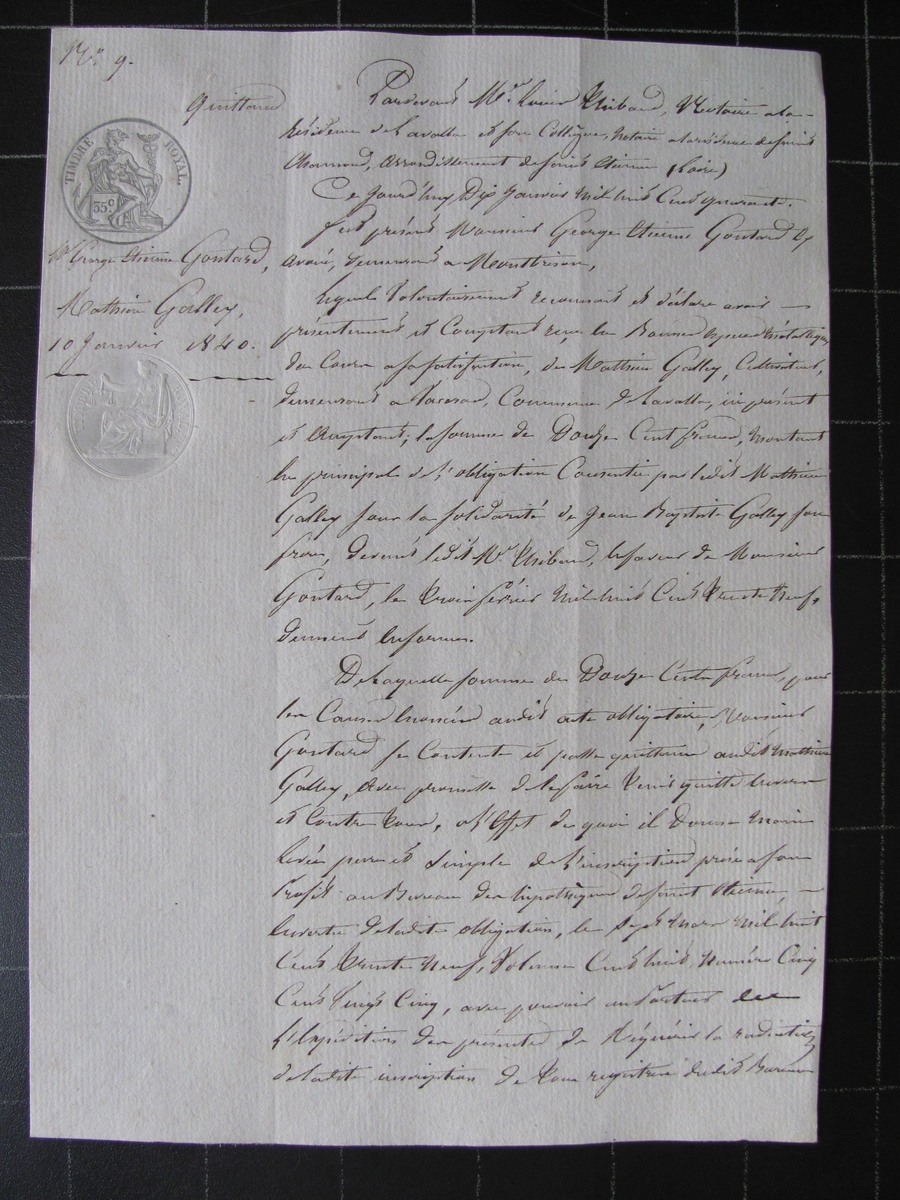 N.° 9.
Quittance
TIMBRE ROYAL.
35c
Mr George Etienne Gontard,
Mathieu Galley,
10 Janvier 1840.
Pardevant Mr. Thibaud, Notaire à la
Résidence de Lavalla et son Collègue, Notaire à la résidence de saint
Chamond, arrondissement de saint Etienne (Loire)
Ce Jourd'huy Dix Janvier Mil huit Cent quarante.
fut présent Monsieur George Etienne Gontard
avoué, demeurant à Montbrison,
lequel Volontairement reconnait et déclare avoir
présentement et Comptant reçu en Bonnes Espèces Métalliques
du Cours a sa satisfaction, de Mathieu Galley, Cultivateur,
demeurant a Commune de Lavalla, ici présent
et acceptant, la somme de Douze Cent francs, montant
en principal de l'obligation Consentie par ledit Mathieu
Galley sous la solidarité de Jean Baptiste Galley son
frère, devant ledit Mr. Thibaud, en faveur de Monsieur
Gontard, le trois février Mil huit Cent trente Neuf,
dument en forme.
De laquelle somme de Douze Cents francs, pour
les Causes énoncées audit acte obligatoire, Monsieur
Gontard se Contente et passe quittance audit Mathieu
Galley, avec promesse de le faire tenir quitte envers
et Contre tous, a l'Effet de quoi il Donne Main
levée pure et simple de l'inscription prise a son
Profit au Bureau des hypothèques de saint Etienne,
en vertu de ladite obligation, le Sept Mars Mil huit
Cent trente Neuf, Volume Cent huit, Numéro Cinq
Cent Vingt Cinq, avec pouvoir au Porteur de
l'Expédition des présentes de Requérir la radiation
de ladite inscription de tous registres dudit Bureau